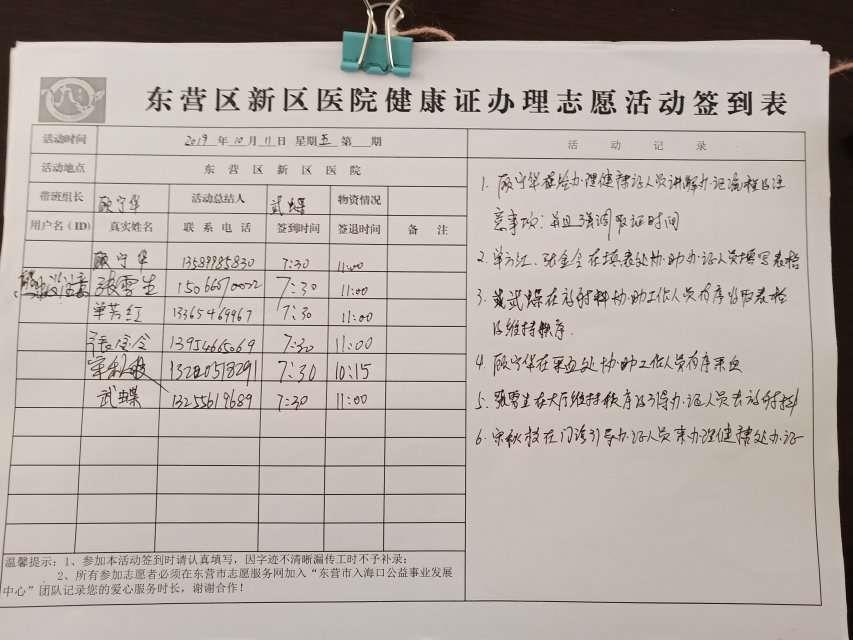 东营区新区医院健康证办理志愿活动签到表
活动时间 2019 年 10 月 11 日 星期 五 第 期
活动地点 东营区新区医院
带班组长 顾宁华 活动总结人 武蝶 物资情况
用户名（ID） 真实姓名 联系电话 签到时间 签退时间 备注
顾宁华 13589985830 7:30 11:00
张雪生 15066070022 7:30 11:00
单芳红 13365469967 7:30 11:00
张金令 13954665069 7:30 11:00
7:30 10:15
武蝶 13255619689 7:30 11:00
温馨提示：1、参加本活动签到时请认真填写，因字迹不清晰漏传工时不予补录；
2、所有参加志愿者必须在东营市志愿服务网加入“东营市入海口公益事业发展
中心”团队记录您的爱心服务时长，谢谢合作！
活动记录
1. 顾宁华在给办理健康证人员讲解办证流程及注
意事项；并且强调取证时间
2. 单方江、张金令在填表处协助办证人员填写表格
3. 武蝶在 协助工作人员有序收取表格
及维持秩序.
4. 顾宁华在采血处协助工作人员有序采血
5. 张雪生在大厅维持秩序及引导办证人员去
6. 宋秋 在门诊引导办证人员来办理健康处办证